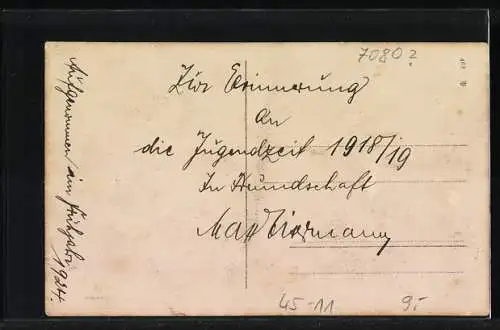 7080?
Zur Erinnerung
an
die Jugendzeit 1918/19
In Freundschaft
Max
Aufgenommen im Frühjahr 1924.
45-11
9.-